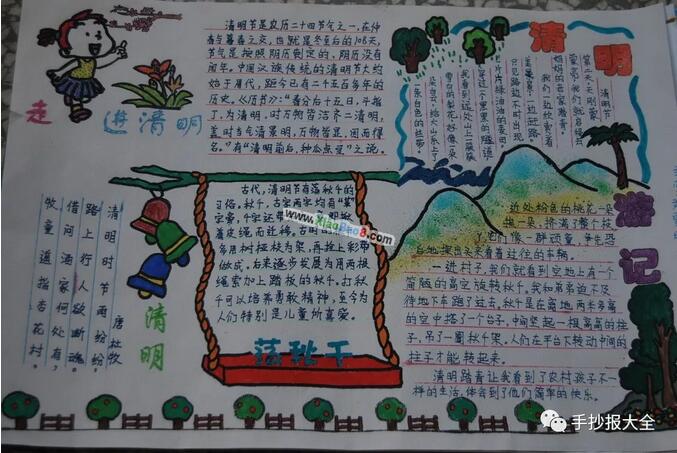 走进清明
清明节是农历二十四节气之一，在仲
春与暮春之交，也就是冬至后的108天。
节气是按照阳历制定的，阴历没有
闰年。中国汉族传统的清明节大约
始于周代，距今已有二千五百多年的
历史。《历书》："春分后十五日，斗指
丁，为清明，时万物皆洁齐而清明，
盖时当气清景明，万物皆显，因而得
名。"有"清明前后，种瓜点豆"之说。
清明时节雨纷纷，
路上行人欲断魂。
借问酒家何处有，
牧童遥指杏花村。
唐 杜牧
清明
古代，清明节有荡秋千的
习俗。秋千，古字两字均有"革"
字旁，千字还带
皮绳而迁移。古
多用树桠枝为架，再拴上彩带
做成。后来逐步发展为用两根
绳索加上踏板的秋千。打秋
千可以培养勇敢精神，至今为
人们特别是儿童所喜爱。
荡秋千
清明
游记
清明节
第二天，天刚蒙
蒙亮，我们就启程去
妈妈的老家潜青。
我们一边欣赏着
美景，一边赶路。
只见路边不时出现
片片绿油油的麦田，
穿过不里里的隧道
我看到远处山上一簇簇
雪白的梨花，好像一朵
朵白云，给大山系上了
一条白色的丝带。
近处粉色的桃花一朵
挨一朵，挤满了整个枝
丫，它们像一群顽童，争先恐
后地探出头来看着过往的车辆。
一进村子，我们就看到空地上有一个
简陋的高空旋转秋千。我和弟弟迫不及
待地下车跑了过去，秋千是在离地两米多高
的空中搭了一个台子，中间竖起一根高高的柱
子，吊了一圈秋千架。人们在平台下转动中间的
柱子才能转起来。
清明踏青让我看到了农村孩子不一
样的生活，体会到了他们简单的快乐。
www.XiaoBao8.com
手抄报大全